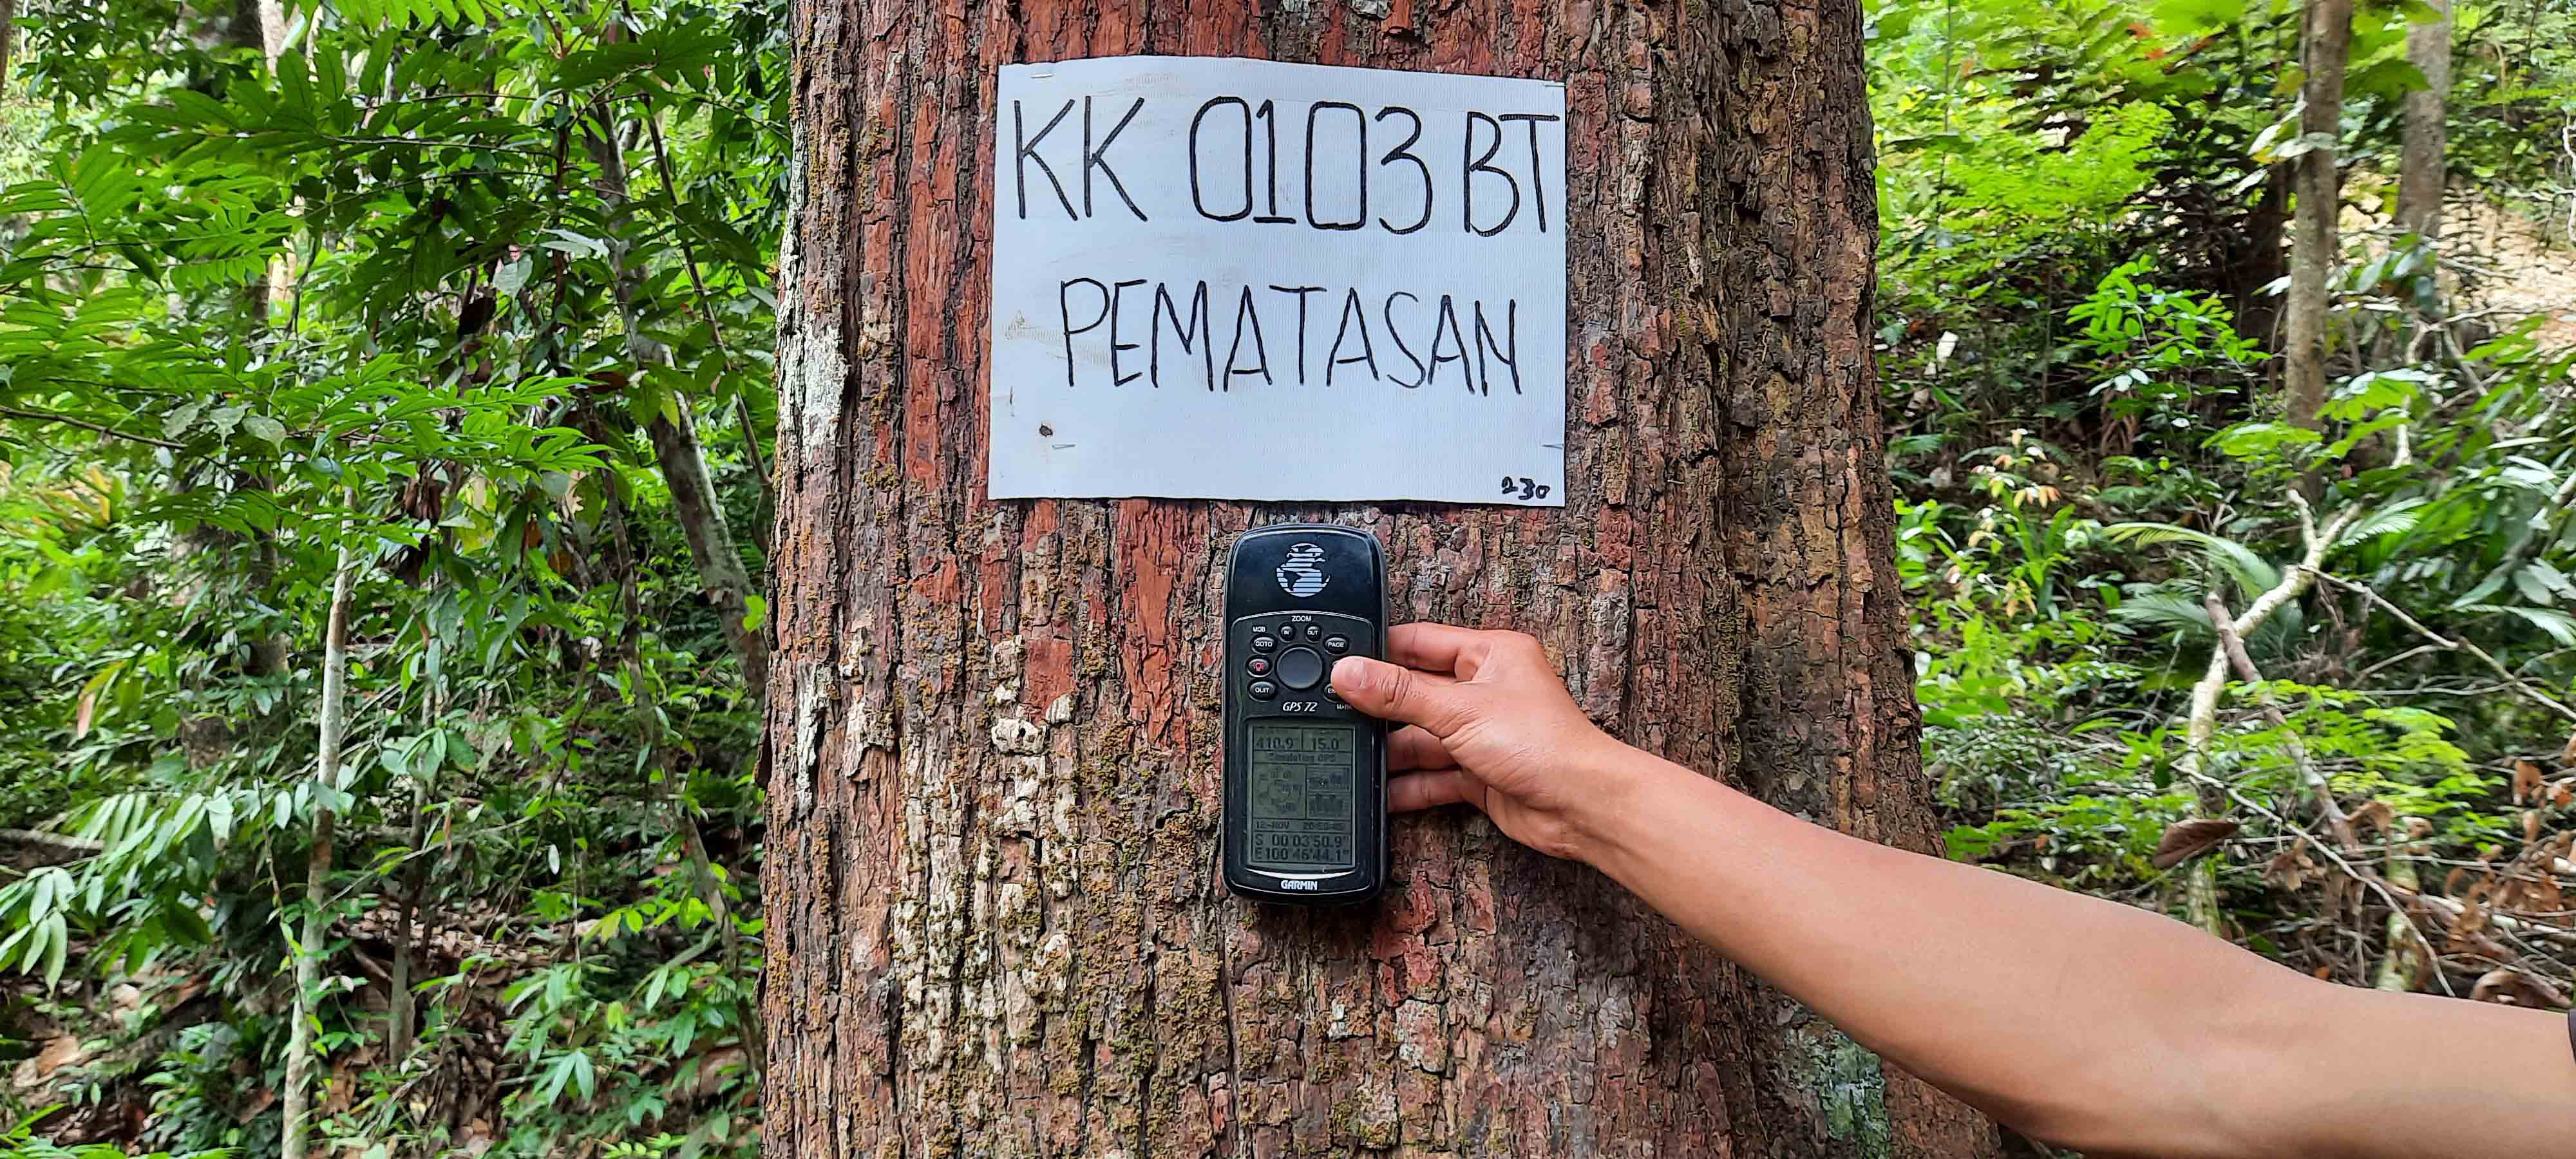 KK 0103 BT
PEMATASAN
230
ZOOM
MOB IN OUT
GOTO PAGE
QUIT
GPS 72
410.9 15.0
Simulating GPS
12-NOV
S 00°03'50.9"
E100°46'44.1"
GARMIN